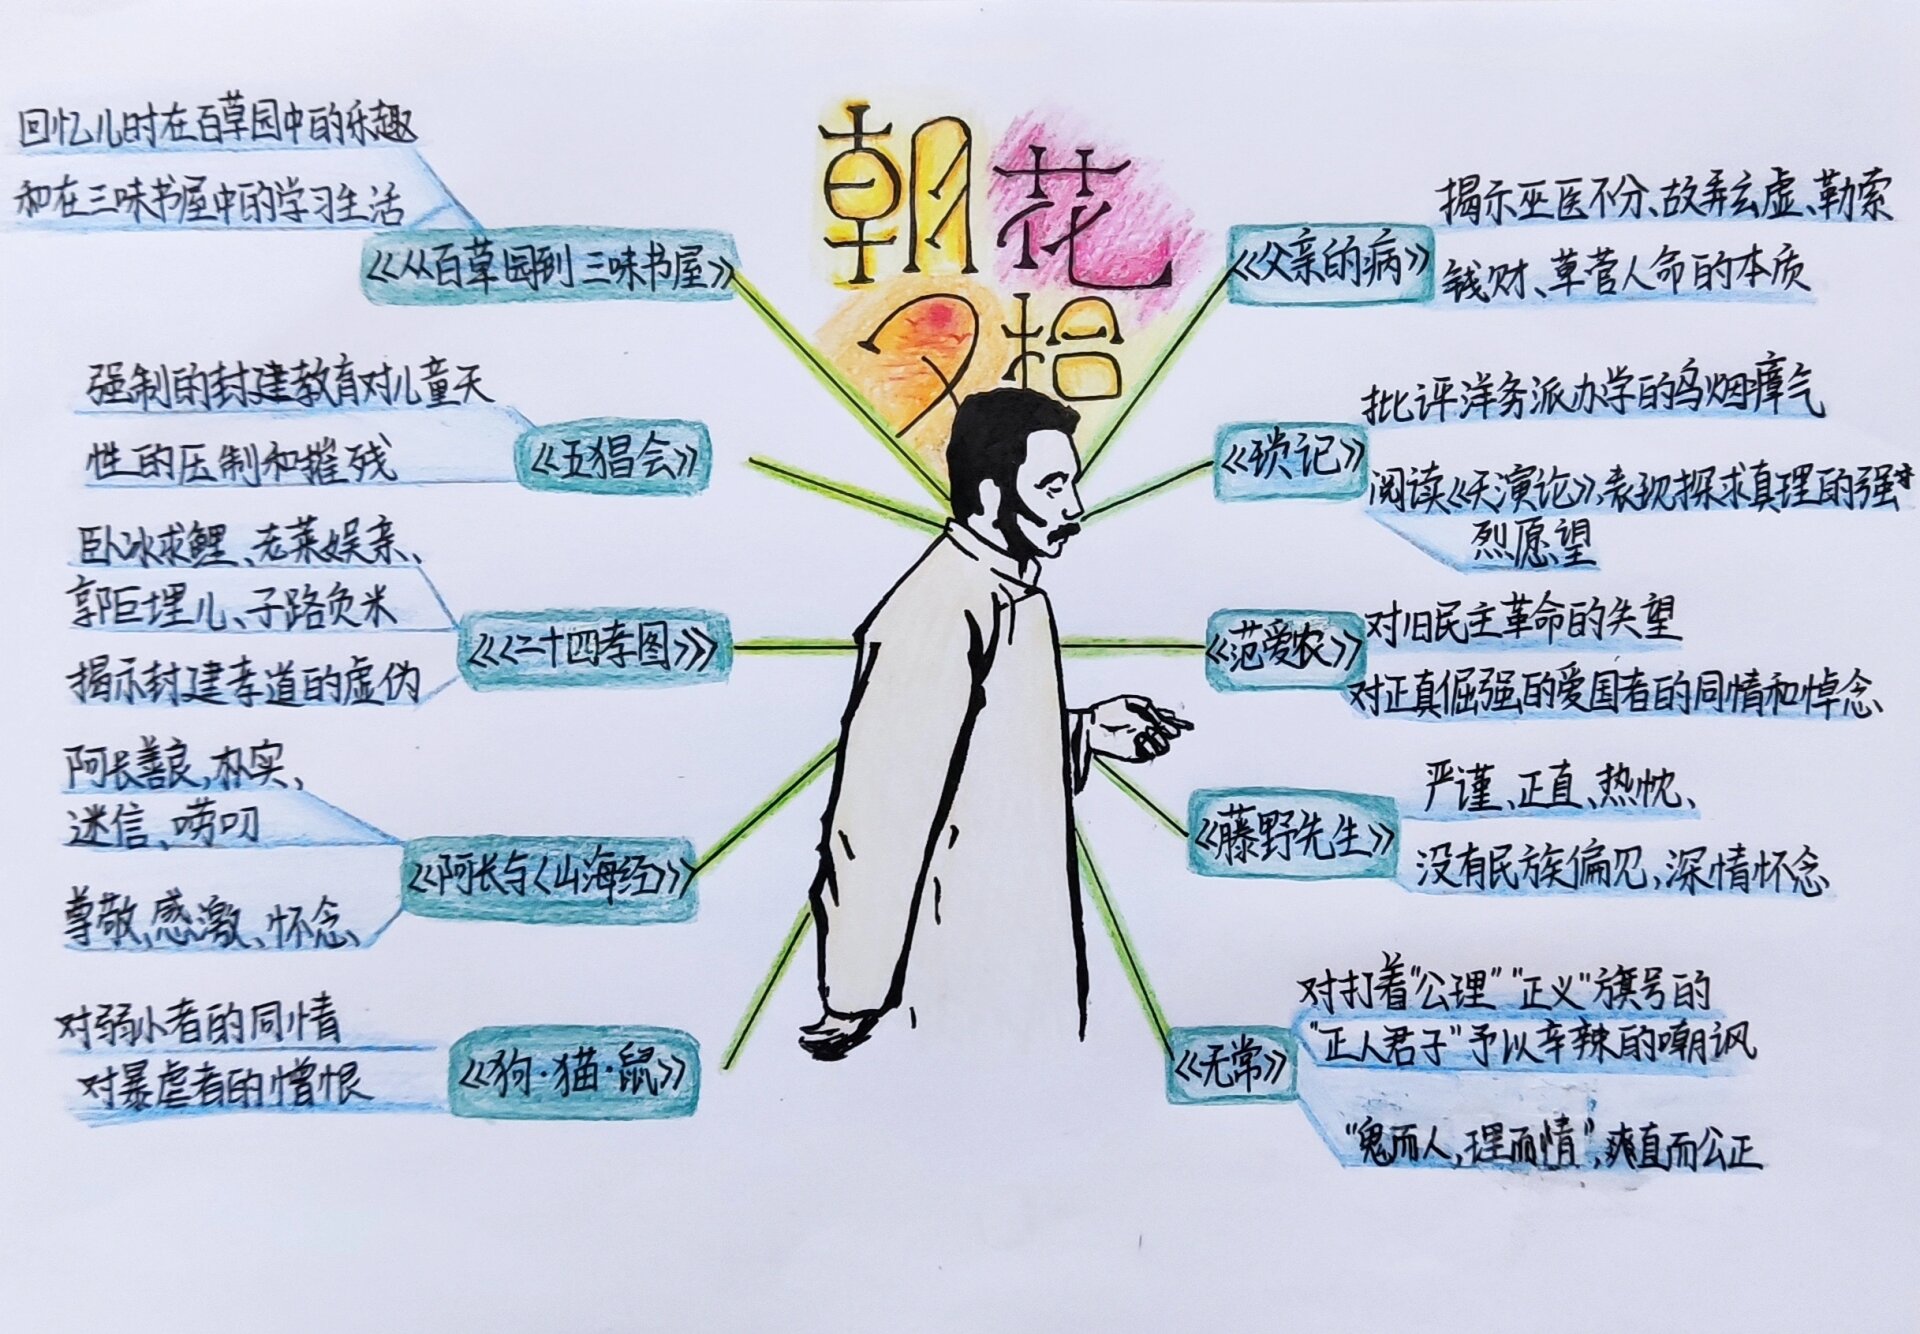 朝花
夕拾
回忆儿时在百草园中的乐趣
和在三味书屋中的学习生活
《从百草园到三味书屋》
强制的封建教育对儿童天
性的压制和摧残
《五猖会》
卧冰求鲤、老莱娱亲、
郭巨埋儿、子路负米
揭示封建孝道的虚伪
《〈二十四孝图〉》
阿长善良,朴实、
迷信、唠叨
尊敬、感激、怀念、
《阿长与〈山海经〉》
对弱小者的同情
对暴虐者的憎恨
《狗·猫·鼠》
揭示巫医不分、故弄玄虚、勒索
钱财、草菅人命的本质
《父亲的病》
批评洋务派办学的乌烟瘴气
《琐记》
阅读《天演论》,表现探求真理的强
烈愿望
对旧民主革命的失望
《范爱农》
对正真倔强的爱国者的同情和悼念
严谨、正直、热忱、
《藤野先生》
没有民族偏见,深情怀念
对打着"公理""正义"旗号的
"正人君子"予以辛辣的嘲讽
《无常》
"鬼而人,理而情",爽直而公正